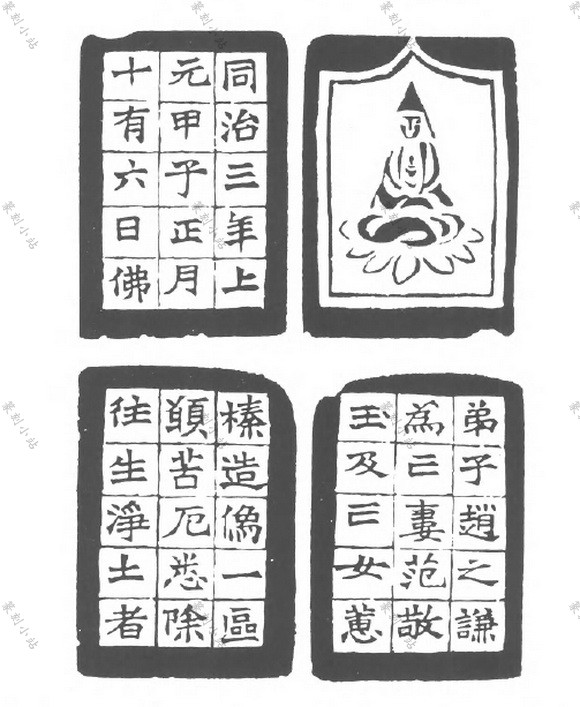 同治三年上
元甲子正月
十有六日佛
弟子趙之謙
為亡妻范敬
玉及亡女蕙
榛造像一區
願苦厄悉除
往生淨土者
篆刻小站